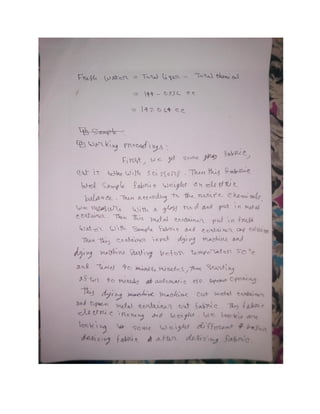 Fresh Water = Total liqor - Total chemical
= 144 - 0.936 cc
= 143.064 cc
Sample
Working Proceedings:
First, we get some grey fabric,
cut it with scissors. Then this fabric
sample fabric weight on electric
balance. Then according to the recipe chemicals
we measure with a glass rod and put in metal
container. Then this metal container put in fresh
water with sample fabric and container cap
Then this container input dying machine and
dying machine starting before temperature 50°c
and Time 40 minute , then starting
after 40 minute at automatic opening.
This dying machine machine out metal container
and open metal container out fabric. This fabric
electric and weight. We looking are
looking some weight different before
desizing fabric & after desizing fabric